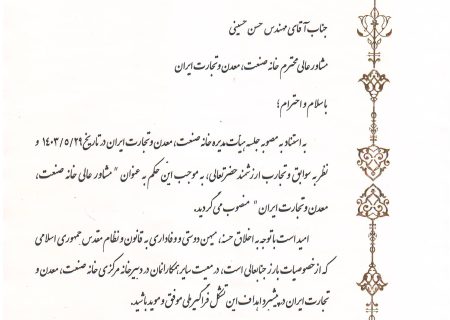 جناب آقای مهندس حسن حسینی
مشاور عالی محترم خانه صنعت، معدن و تجارت ایران
باسلام و احترام؛
به استناد به مصوبه جلسه هیأت مدیره خانه صنعت، معدن و تجارت ایران در تاریخ ۱۴۰۳/۵/۲۹ و
نظر به سوابق و تجارب ارزشمند حضرتعالی، به موجب این حکم به عنوان "مشاور عالی خانه صنعت،
معدن و تجارت ایران" منصوب می گردید.
امید است با توجه به اخلاق حسنه، میهن دوستی و وفاداری به قانون و نظام مقدس جمهوری اسلامی
که از خصوصیات بارز جنابعالی است، در معیت سایر همکارانمان در دبیرخانه مرکزی خانه صنعت، معدن و
تجارت ایران در پیشبرد اهداف این تشکل فراگیر ملی موفق و موید باشید.